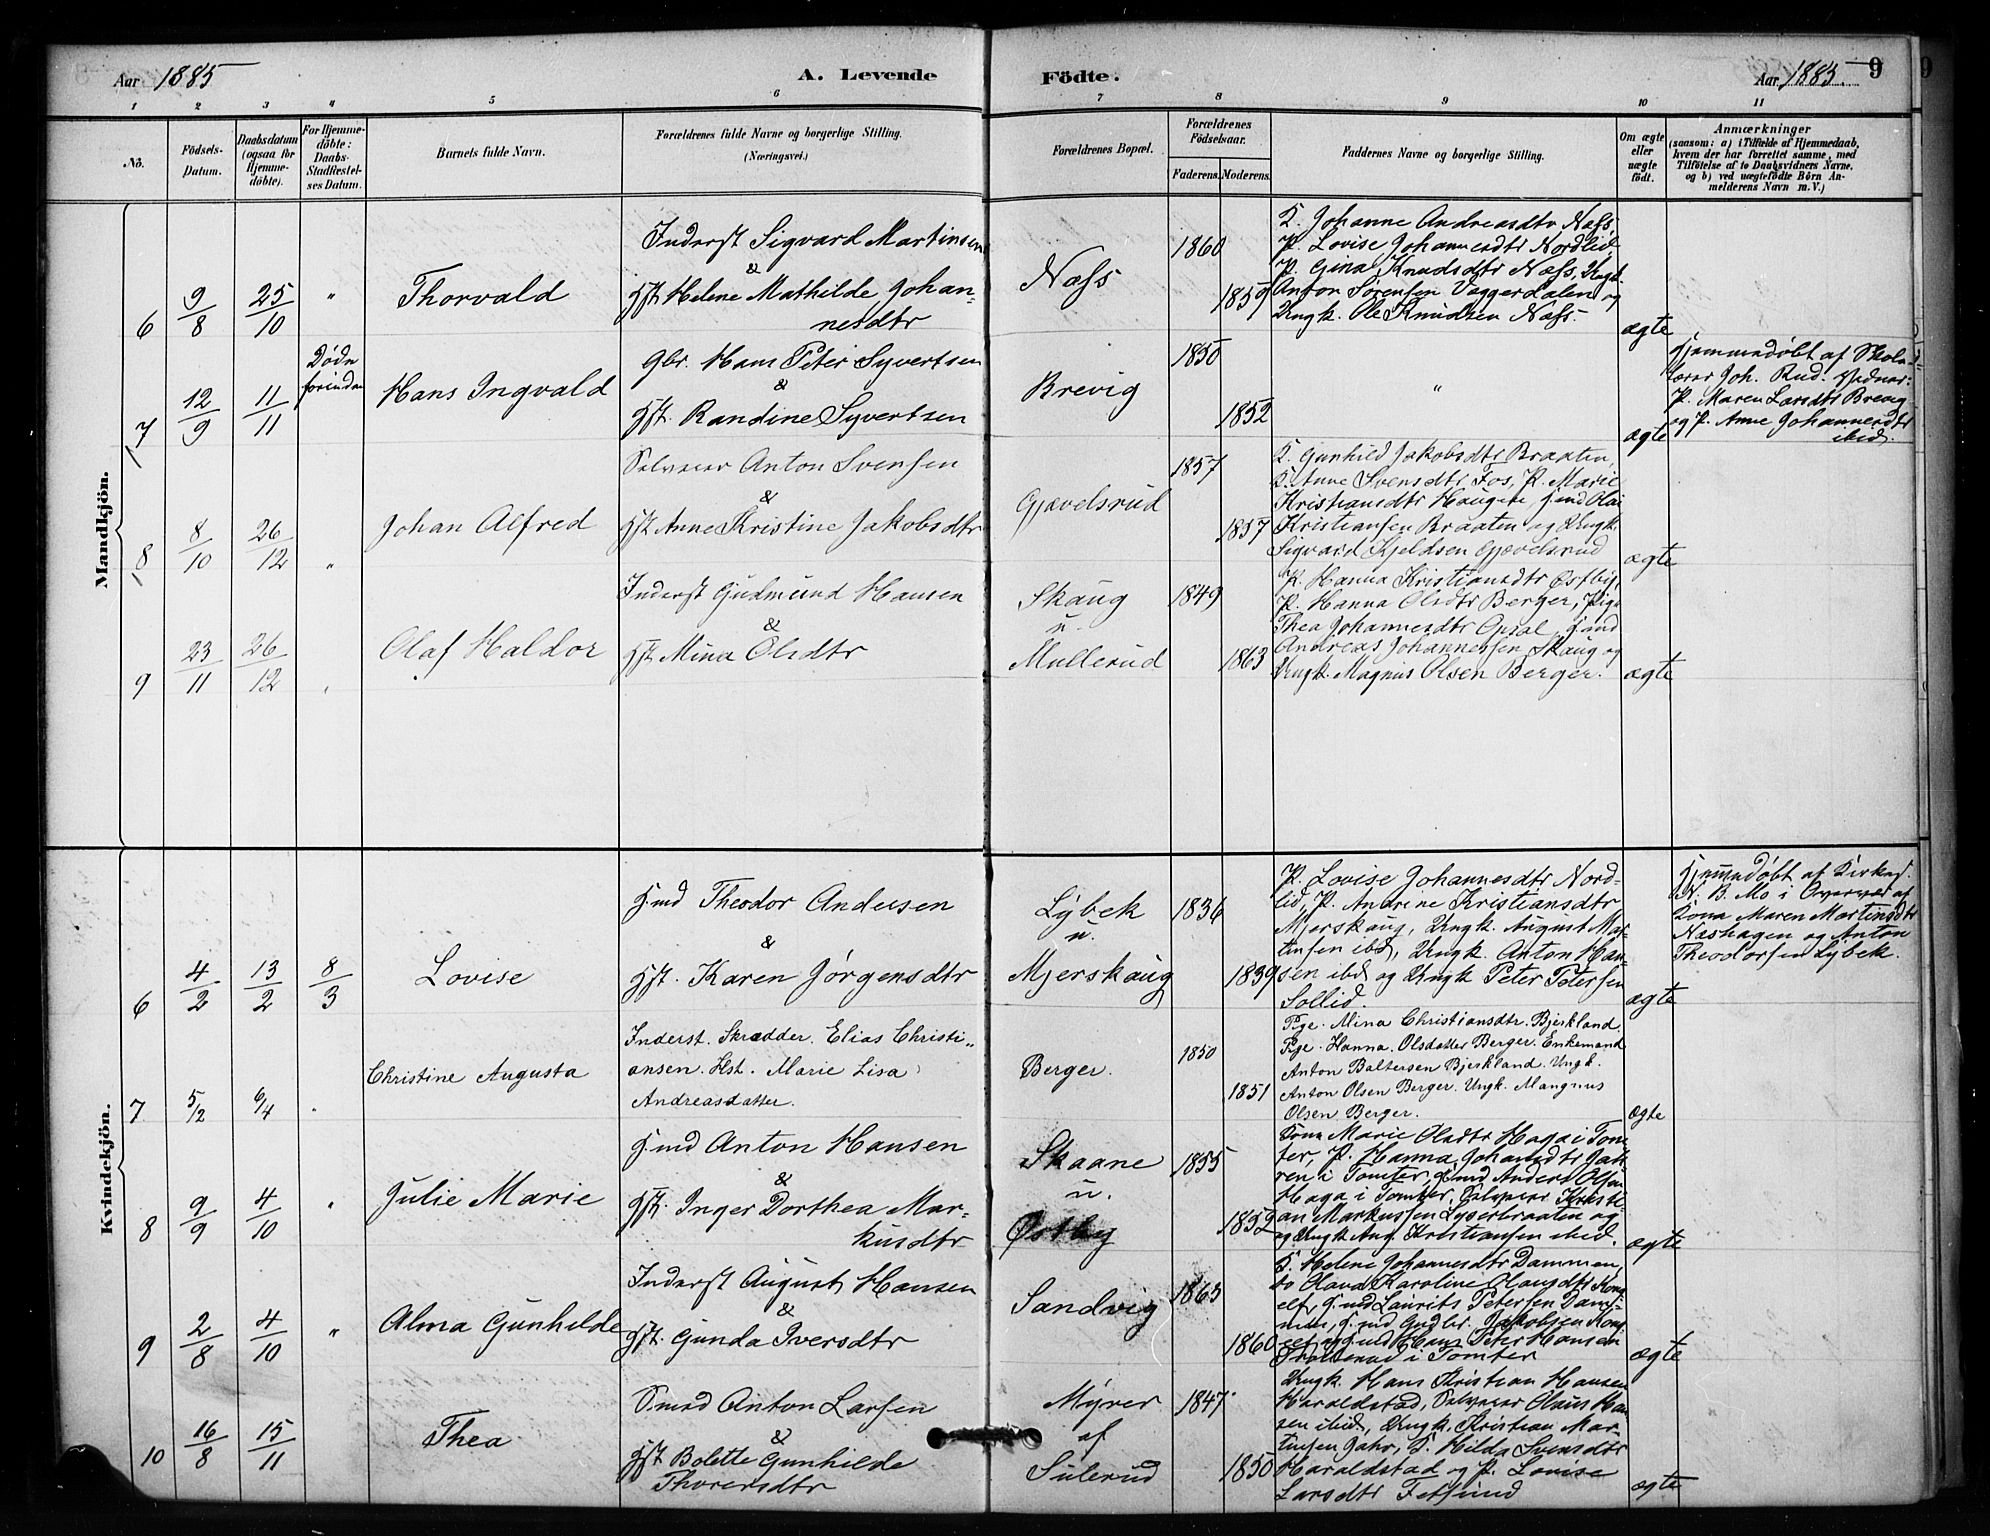 Aar 1885
A. Levende
Födte.
Aar 1885.
9
1 2 3 4 5 6 7 8 9 10 11
No.
Födsels-
Datum.
Daabsdatum
(ogsaa for
Hjemme-
döbte).
For Hjemme-
döbte:
Daabs-
Stadfæstel-
ses Datum.
Barnets fulde Navn.
Forældrenes fulde Navne og borgerlige Stilling.
(Næringsvei.)
Forældrenes Bopæl.
Forældrenes
Födselsaar.
Faderens. Moderens.
Faddernes Navne og borgerlige Stilling.
Om ægte
eller
uægte
födt.
Anmærkninger
(saasom: a) i Tilfælde af Hjemmedaab,
hvem der har forrettet samme, med
Tilföielse af to Daabsvidners Navne,
og b) ved uægtefödte Börn An-
melderens Navn m. V.)
Mandkjön.
6
9/8
25/10
"
Thorvald
Inderst Sigvard Martinsen
&
Hst. Helene Mathilde Johan-
nesdtr
Næss
1860
1859
K. Johanne Andreasdtr Næss,
P. Lovise Johannesdtr Nordlid,
P. Gina Knudsdtr Næss, Ungk.
Anton Sørensen Væggerdalen og
Ungk. Ole Knudsen Næss.
ægte
7
12/9
11/11
Døde
forinden
Hans Ingvald
Gbr. Hans Peter Syvertsen
&
Hst. Randine Syvertsen
Brevig
1850
1852
"
ægte
Hjemmedøbt af Skole-
lærer Joh. Rud. Vidner:
P. Maren Larsdtr Brevig
og P. Anne Johannesdtr
ibid.
8
8/10
26/12
"
Johan Alfred
Selveier Anton Svensen
&
Hst. Anne Kristine Jakobsdtr
Gjævelsrud
1857
1857
K. Gunhild Jakobsdtr Braaten,
K. Anne Svensdtr Fos, P. Marie
Kristiansdtr Haugete, Gmd
Kristiansen Braaten og Ungk.
Sigvard Kjeldsen Gjævelsrud
ægte
9
23/11
26/12
"
Olaf Haldor
Inderst Gudmund Hansen
&
Hst. Mina Olsdtr
Skaug
u.
Mullerud
1849
1863
P. Hanna Kristiansdtr Østby,
P. Hanna Olsdtr Berger, Pige
Thea Johannesdtr Opsal, Gmd
Andreas Johannessen Skaug og
Ungk. Magnus Olsen Berger.
ægte
Kvindekjön.
6
4/2
13/2
8/3
Lovise
Gmd Theodor Andersen
&
Hst. Karen Jørgensdtr
Lybek
u.
Mjerskaug
1836
1839
P. Lovise Johannesdtr Nord-
lid, P. Andrine Kristiansdtr
Mjerskaug, Ungk. August Mar-
tinsen ibd, Ungk. Anton Han-
sen ibid og Ungk Peter Petersen
Sollid.
ægte
Hjemmedøbt af Kirkes.
N. B. Mo i Overvær af
Kona Maren Martinsdtr
Næshagen og Anton
Theodorsen Lybek.
7
5/2
6/4
"
Christine Augusta
Inderst. Skrædder. Elias Christi-
ansen. Hst. Marie Lisa
Andreasdatter.
Berger.
1850
1851
Pige. Mina Christiansdtr. Bjerkland.
Pige. Hanna. Olsdatter Berger. Enkemand
Anton Baltersen Bjerkland. Ungk.
Anton Olsen Berger. Ungk. Mangnus
Olsen Berger.
Ægte
8
9/9
4/10
"
Julie Marie
Gmd Anton Hansen
&
Hst. Inger Dorthea Mar-
kusdtr
Skaane
u.
Østby
1855
1852
Kona Marie Olsdtr Haga i Tom-
ter, P. Hanna Johansdtr
i Tomter, Gmd Anders Olsen
Haga i Tomter, Selveier Kristi-
an Markussen Lyserbraaten og
og Ungk Aug. Kristiansen ibid.
ægte
9
2/8
4/10
"
Alma Gunhilde
Inderst August Hansen
&
Hst. Gunda Iversdtr
Sandvig
1863
1860
K. Helene Johannesdtr Dammen,
Karoline
Gmd Laurits Petersen Dam-
men, Gmd Jakobsen
og Gmd Hans Peter Hansen
i Tomter
ægte
10
16/8
15/11
Thea
Smed Anton Larsen
&
Hst. Bolette Gunhilde
Thorersdtr
Myrer
af
Sulerud
1847
1850
Ungk. Hans Kristian Hansen
Haraldstad, Selveier Olaus Han-
sen ibid, Ungk. Kristian Mar-
tinsen K. Hilda Svensdtr
Haraldstad og P. Lovise
Larsdtr Fetsund
ægte
9